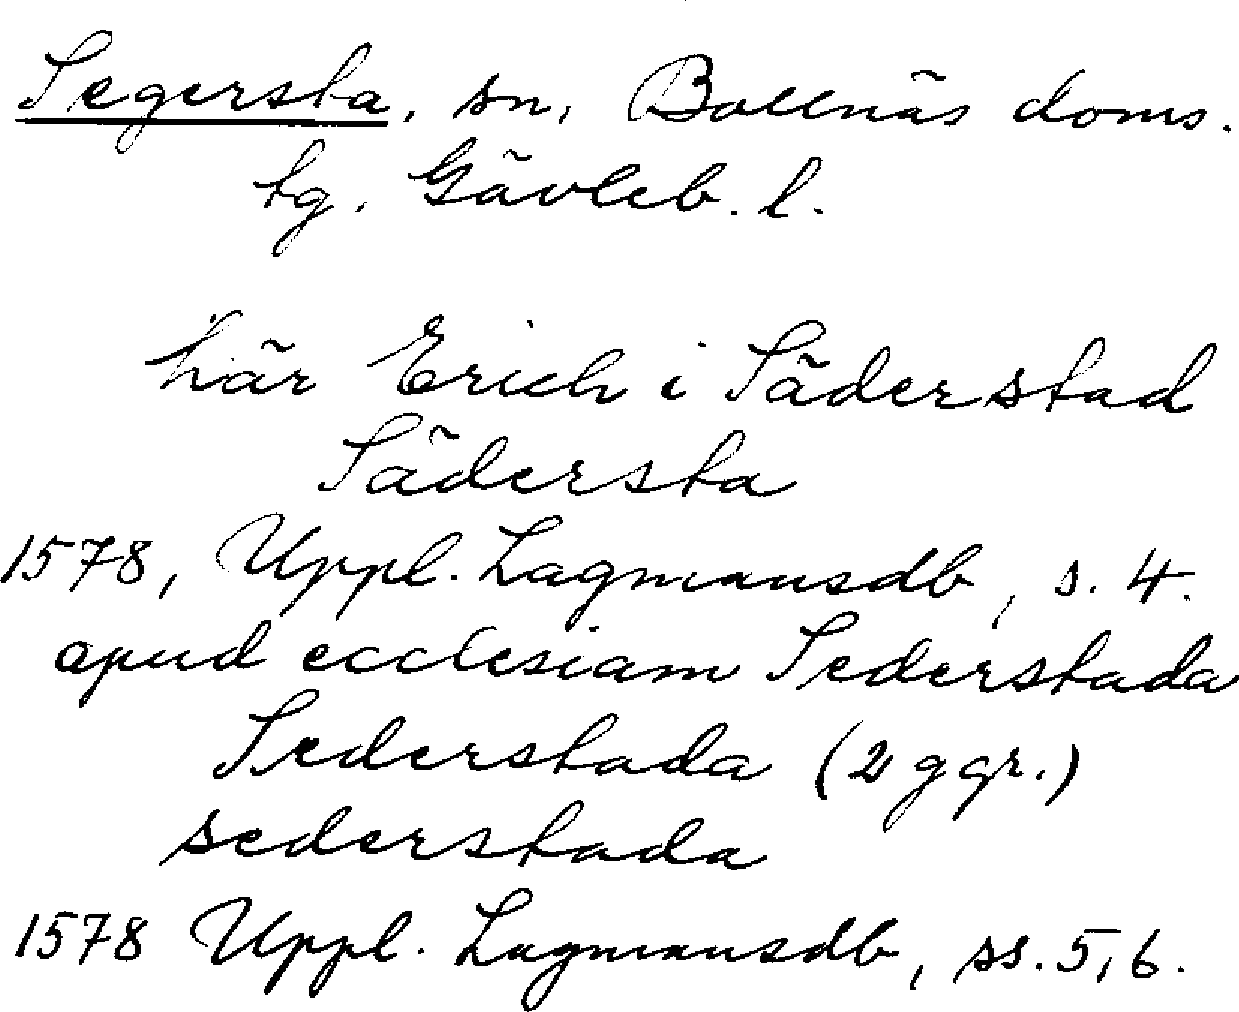 Segersta, sn, Bollnäs doms.
tg. Gävleb. l.
här Erich i Säderstad
Sädersta
1578, Uppl. Lagmansdb, s. 4.
apud ecclesiam Sederstada
Sederstada (2 ggr.)
sederstada
1578 Uppl. Lagmansdb, ss. 5, 6.